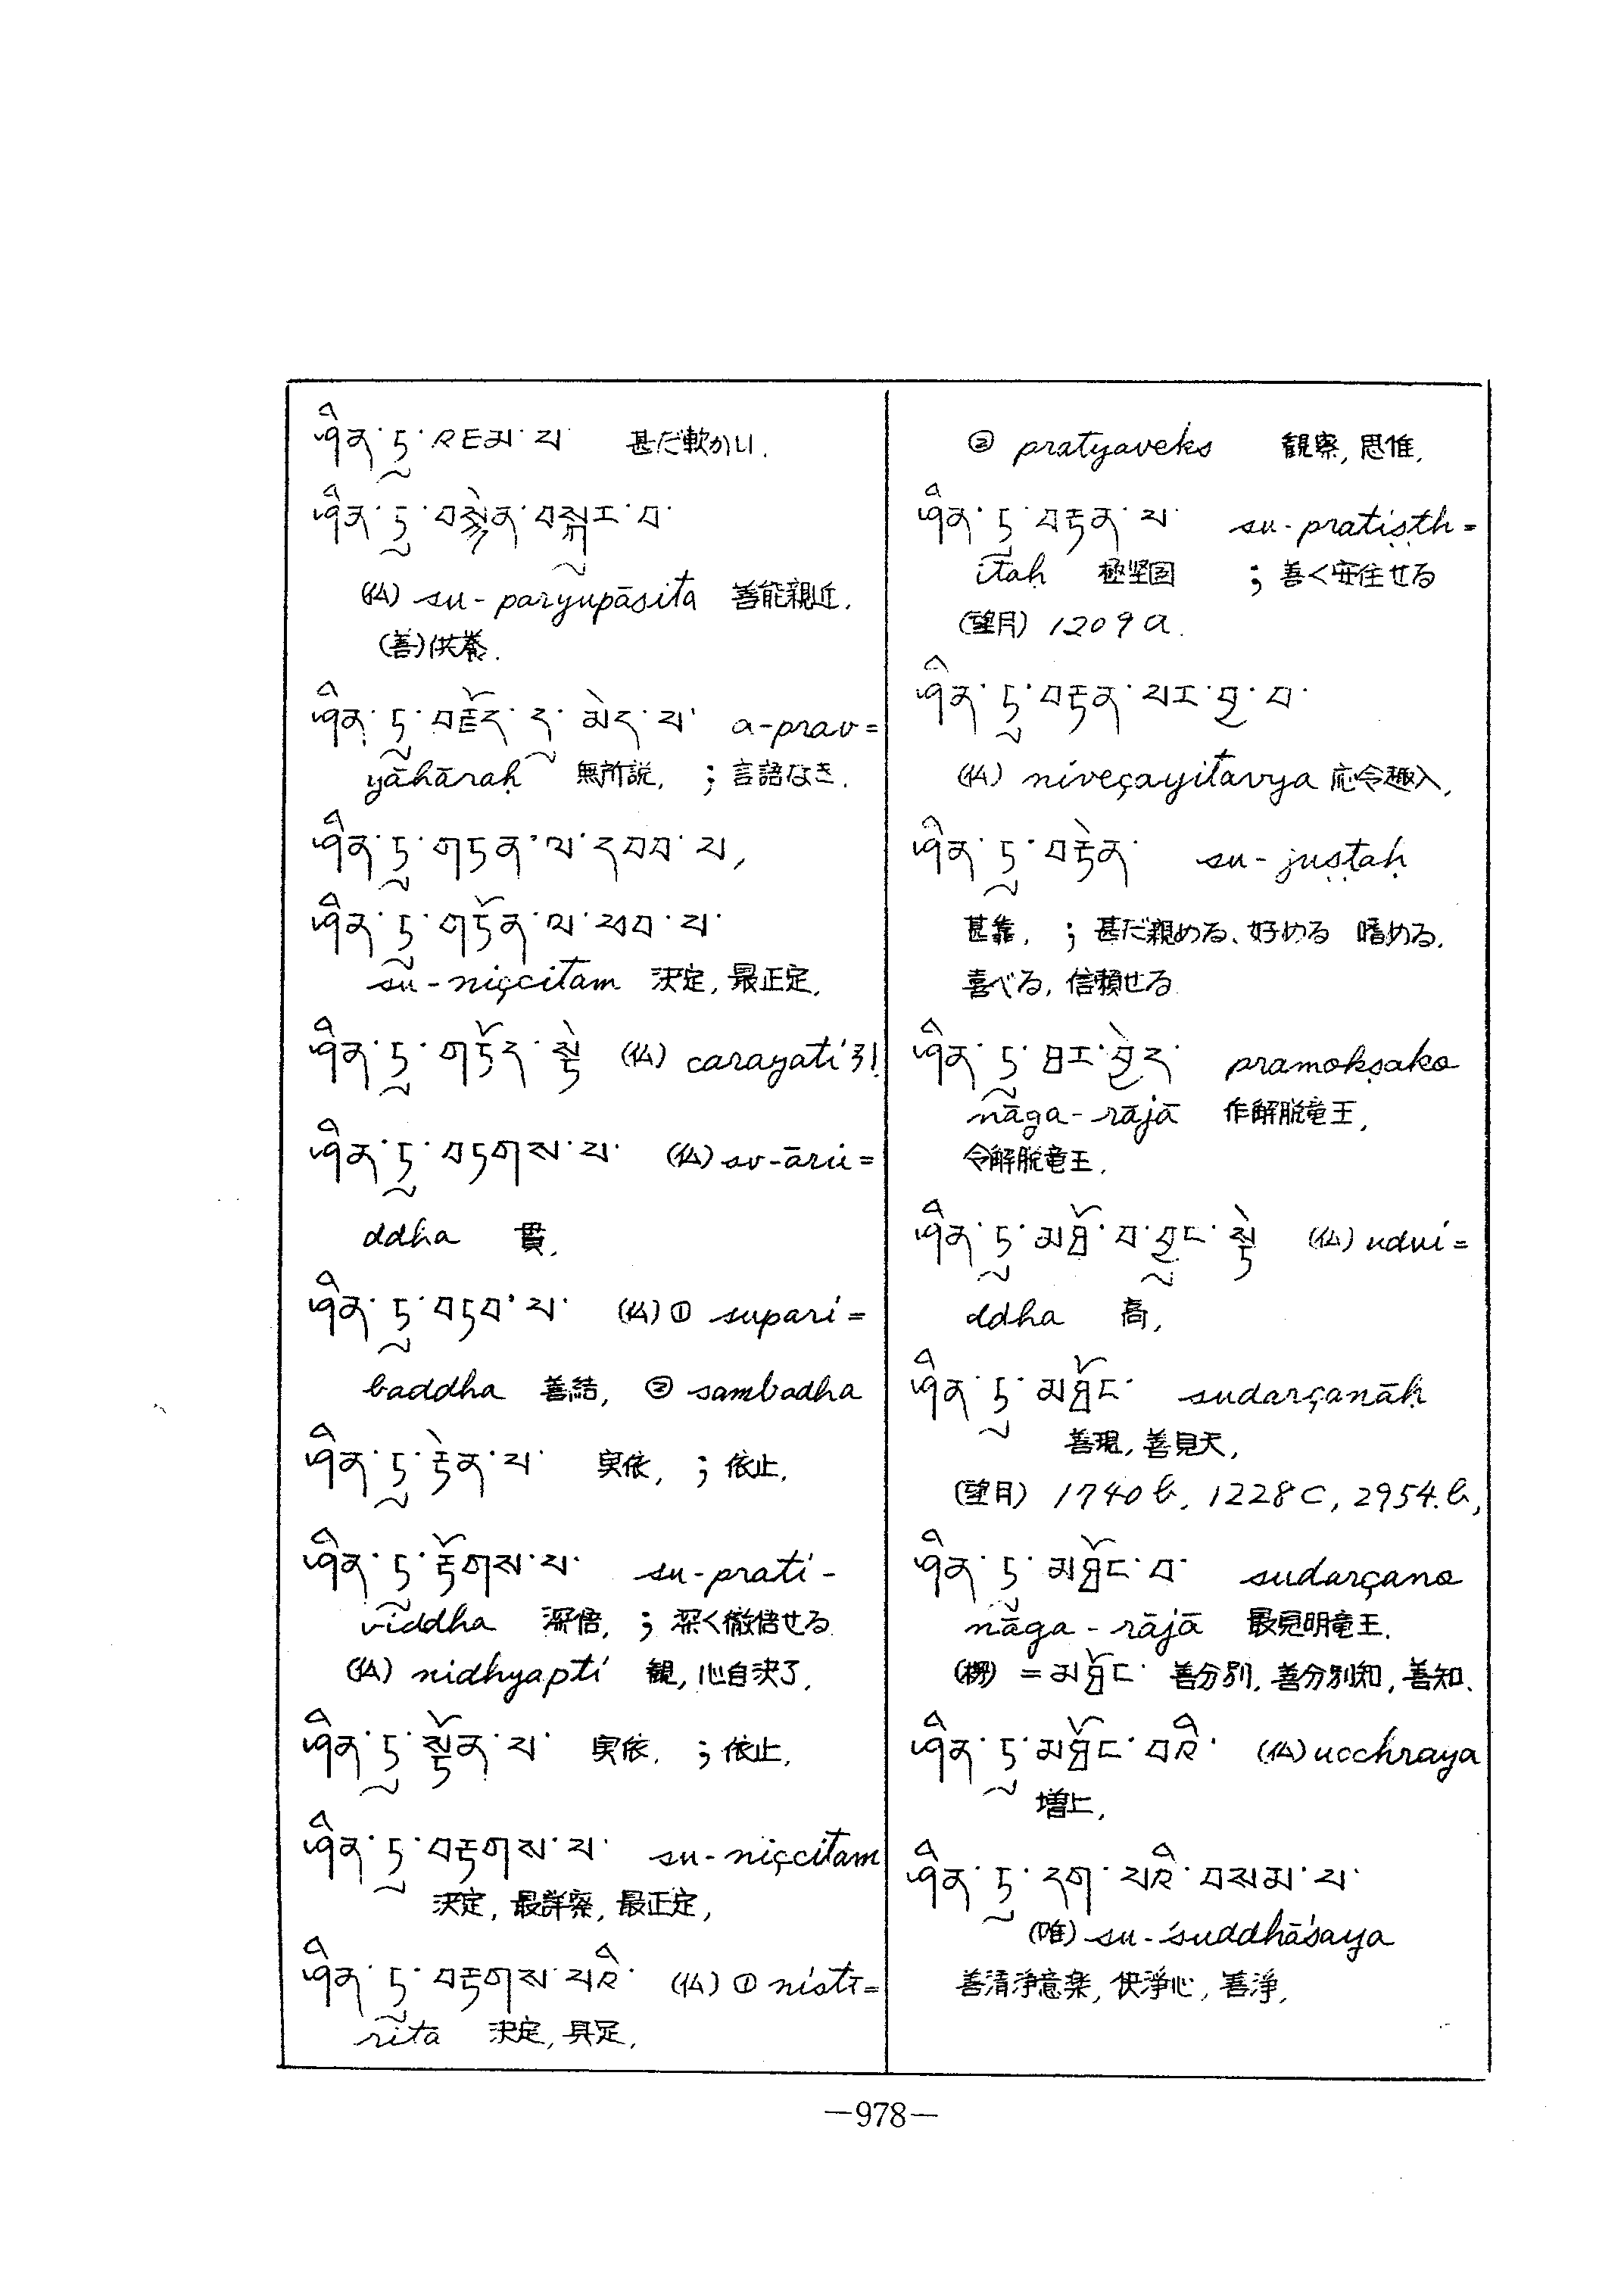 ཤིན་ཏུ་འཇམ་པ་ 甚だ軟かい.
ཤིན་ཏུ་བསྙེན་བསྐུར་བ་
(仏) su-paryupāsita 善能親近.
(善)供養.
ཤིན་ཏུ་བརྗོད་དུ་མེད་པ་ a-prav=
yāhāraḥ 無所説, ; 言語なき.
ཤིན་ཏུ་གཏན་ལ་དབབ་པ,
ཤིན་ཏུ་གཏོན་ལ་ཕབ་པ་
su-niçcitam 決定, 最正定,
ཤིན་ཏུ་གཏོད་སྟེ (仏) carayati 引!
ཤིན་ཏུ་བཏགས་པ་ (仏) sv-āru=
ddha 貫,
ཤིན་ཏུ་བཏབ་པ་ (仏) ① supari=
baddha 善結, ② sambadha
ཤིན་ཏུ་རྟེན་པ་ 実依, ; 依止,
ཤིན་ཏུ་རྟོགས་པ་ su-prati-
viddha 深悟, ; 深く徹悟せる
(仏) nidhyapti 観, 心自決了,
ཤིན་ཏུ་སྟོན་པ་ 実依, ; 依止,
ཤིན་ཏུ་བརྟགས་པ་ su-niçcitam
決定, 最詳察, 最正定,
ཤིན་ཏུ་བརྟགས་པའི་ (仏) ① nistī=
rita 決定, 具足,
② pratyaveks 観察, 思惟,
ཤིན་ཏུ་བརྟན་པ་ su-pratiṣṭh=
itaḥ 極堅固 ; 善く安住せる
(望月) 1209a.
ཤིན་ཏུ་བརྟན་པར་བྱ་བ་
(仏) niveçayitavya 応令趣入,
ཤིན་ཏུ་བརྟེན་ su-juṣṭaḥ
甚靠, ; 甚だ親める、好める 嗜める,
喜べる, 信頼せる
ཤིན་ཏུ་ཐར་བྱེད་ pramokṣako
nāga-rājā 作解脱竜王,
令解脱竜王,
ཤིན་ཏུ་མཐོ་བ་བྱུང་སྟེ (仏) udvi=
ddha 高,
ཤིན་ཏུ་མཐོང་ sudarçanāḥ
善現, 善見天,
(望月) 1740b, 1228c, 2954.b,
ཤིན་ཏུ་མཐོང་བ་ sudarçano
nāga-rājā 最見明竜王.
= མཐོང་ 善分別, 善分別知, 善知、
ཤིན་ཏུ་མཐོང་བའི་ (仏) ucchraya
増上,
ཤིན་ཏུ་དག་པའི་བསམ་པ་
(唯) su-śuddhāśaya
善清浄意楽, 快浄心, 善浄,
—978—